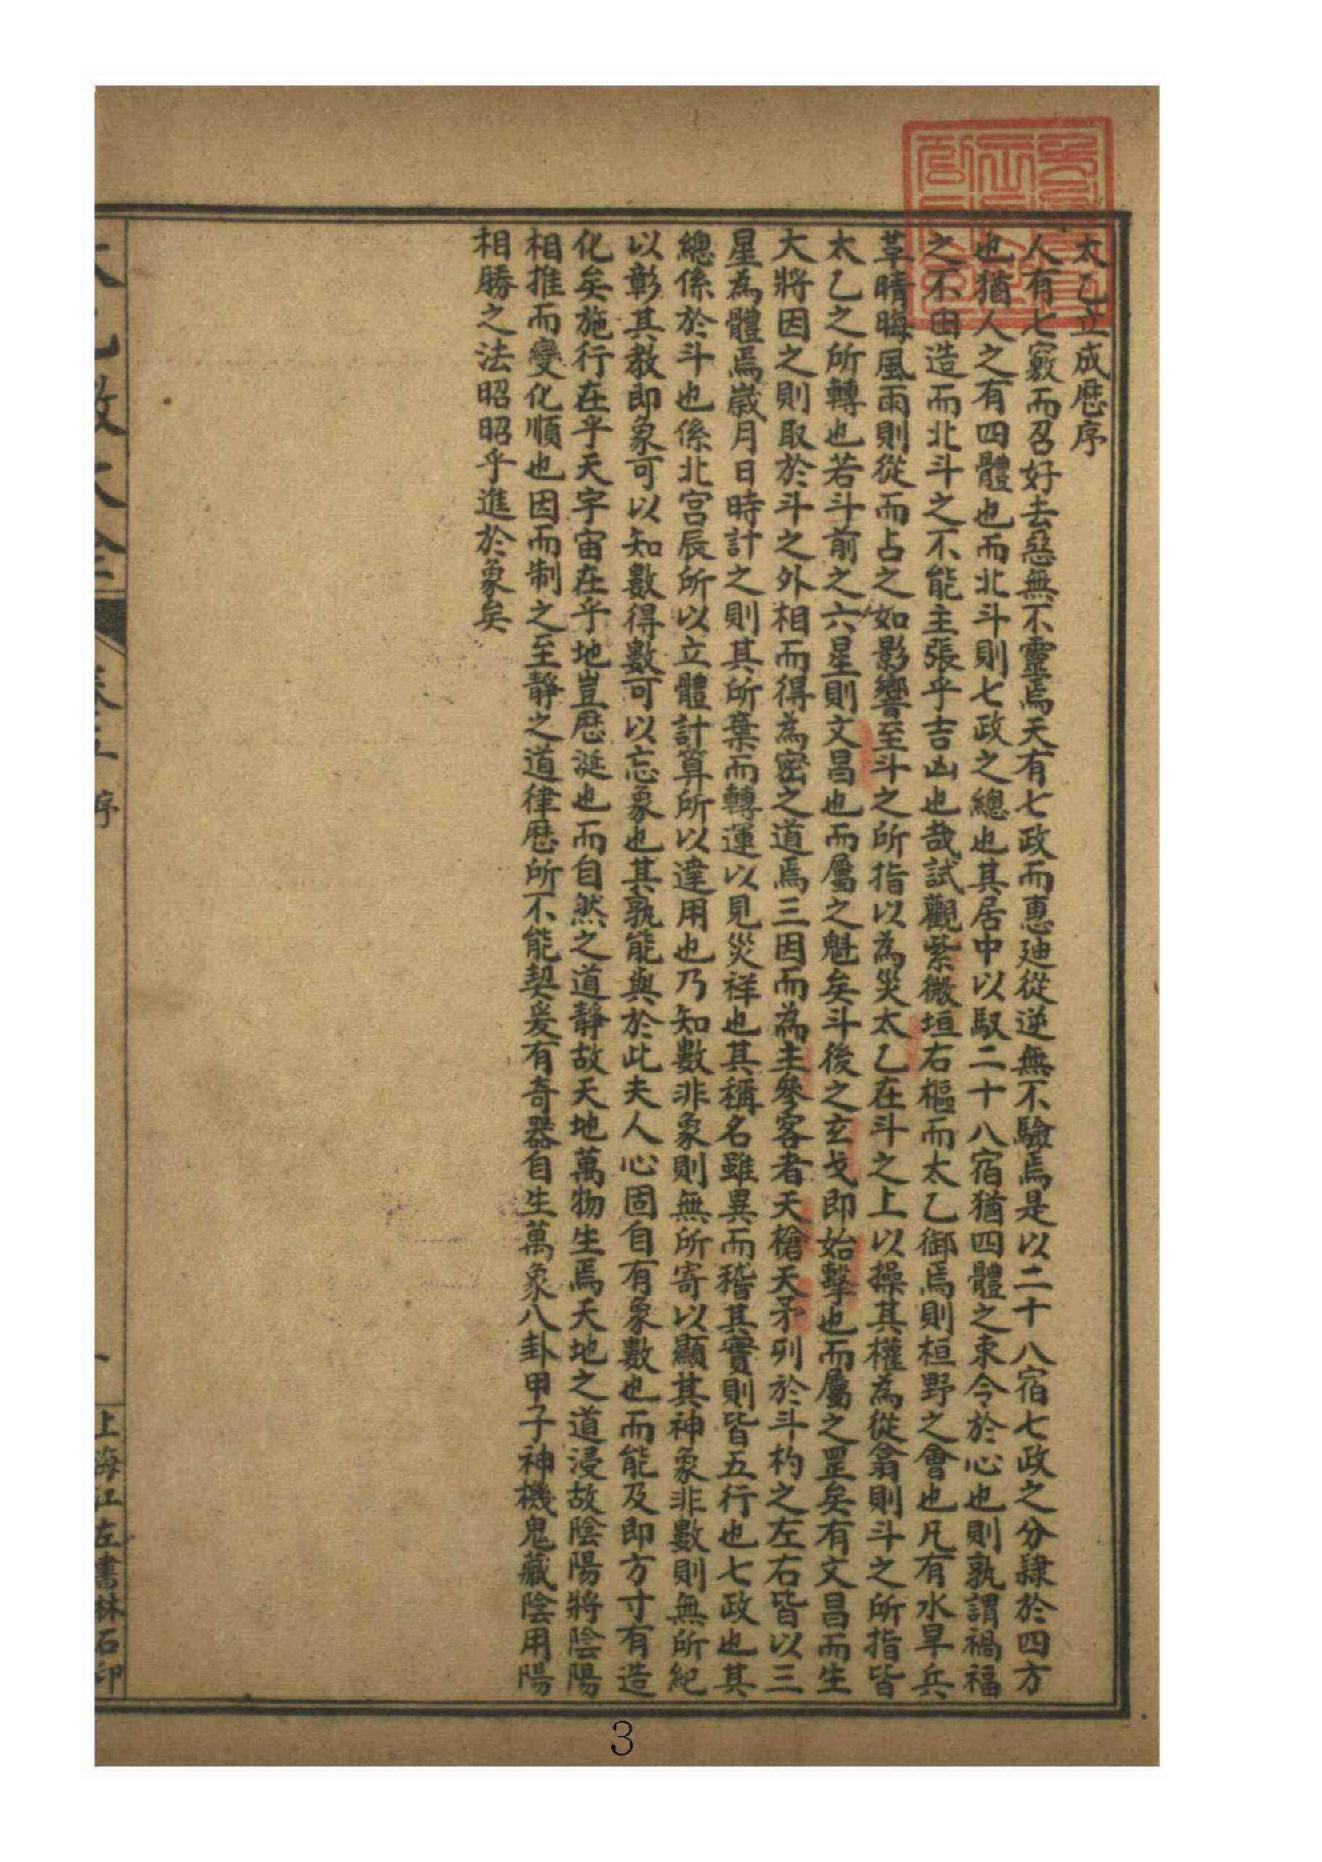 太乙立成歷序
人有七竅而召好去惡無不靈焉天有七政而惠廸從逆無不驗焉是以二十八宿七政之分隸於四方
也猶人之有四體也而北斗則七政之總也其居中以馭二十八宿猶四體之束令於心也則孰謂禍福
之不由造而北斗之不能主張乎吉凶也哉試觀紫微垣右樞而太乙御焉則桓野之會也凡有水旱兵
草晴晦風雨則從而占之如影響至斗之所指以為災太乙在斗之上以操其權為從翕則斗之所指皆
太乙之所轉也若斗前之六星則文昌也而屬之魁矣斗後之玄戈即始擊也而屬之罡矣有文昌而生
大將因之則取於斗之外相而得為密之道焉三因而為主參客者天槍天矛列於斗杓之左右皆以三
星為體焉歲月日時計之則其所棄而轉運以見災祥也其稱名雖異而稽其實則皆五行也七政也其
總係於斗也係北宫辰所以立體計算所以達用也乃知數非象則無所寄以顯其神象非數則無所紀
以彰其教即象可以知數得數可以忘象也其孰能與於此夫人心固自有象數也而能及即方寸有造
化矣施行在乎天宇宙在乎地豈歷誕也而自然之道靜故天地萬物生焉天地之道浸故陰陽將陰陽
相推而變化順也因而制之至靜之道律歷所不能契爰有奇器自生萬象八卦甲子神機鬼藏陰用陽
相勝之法昭昭乎進於象矣
序
上海江左書林石印
3